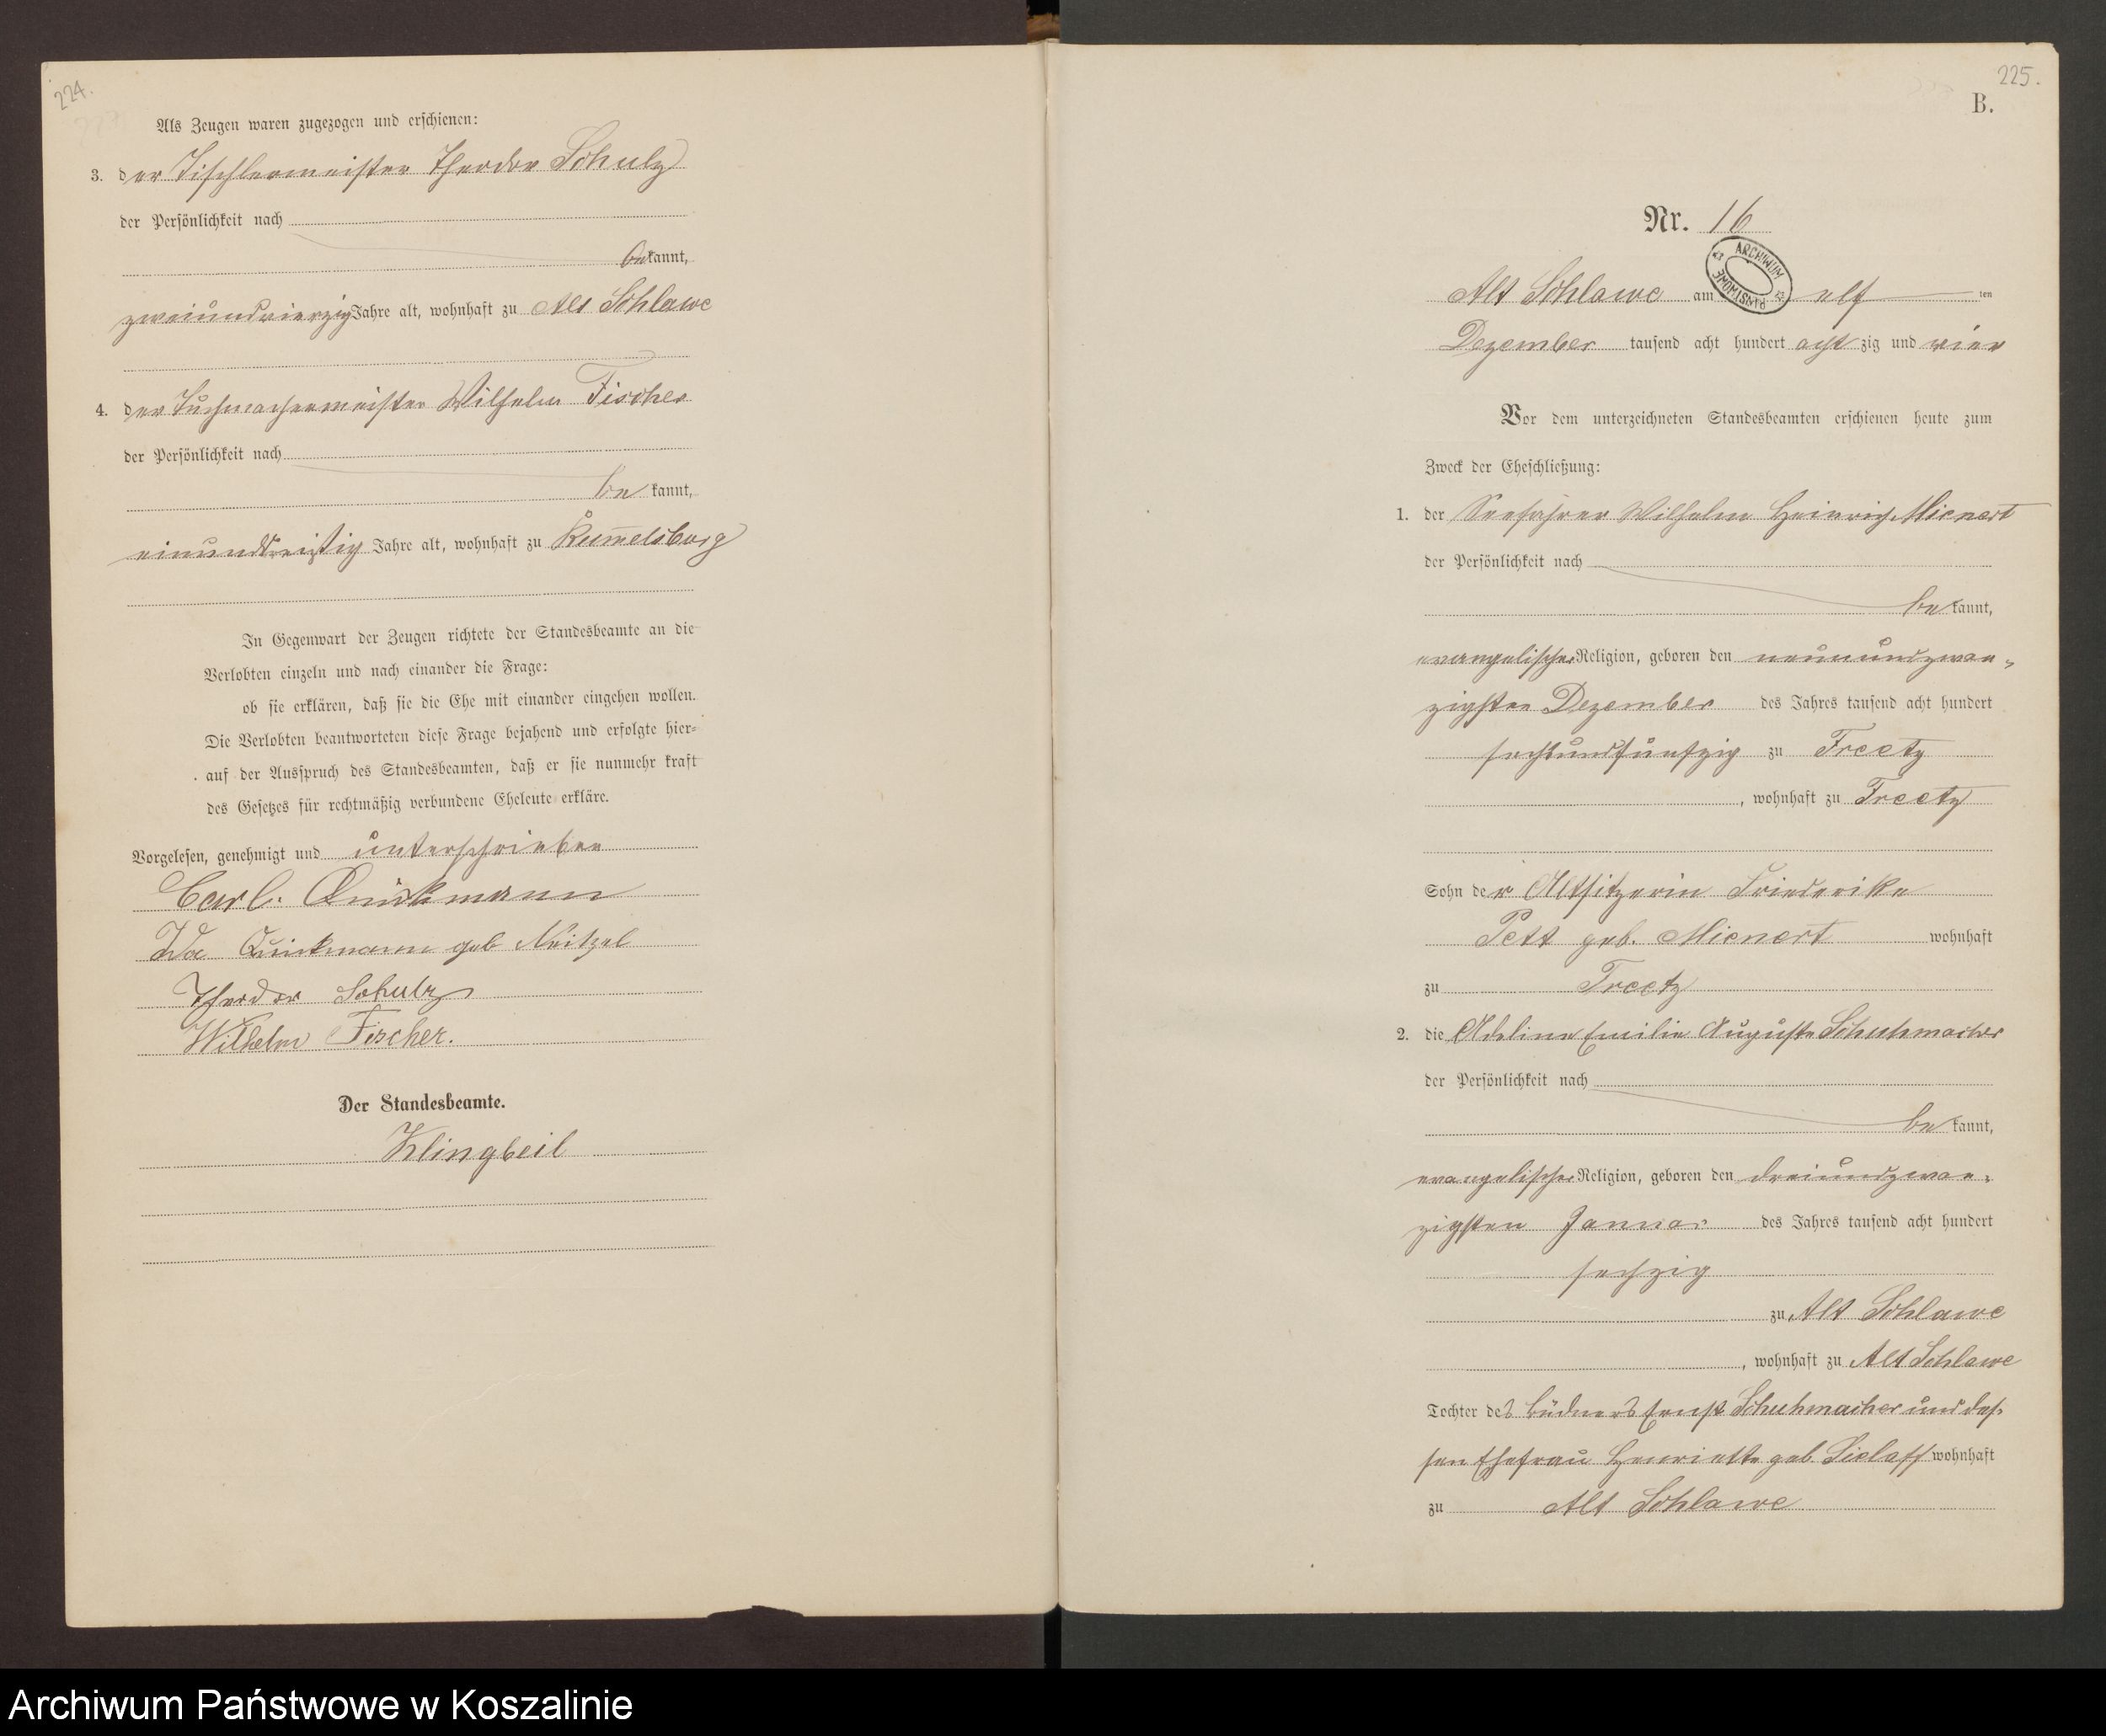 224.
Als Zeugen waren zugezogen und erschienen:
3. der Tischlermeister Theodor Schulz
der Persönlichkeit nach
bekannt,
zweiundvierzig Jahre alt, wohnhaft zu Alt Schlawe
4. der Tuchmachermeister Wilhelm Fischer
der Persönlichkeit nach
bekannt,
einunddreißig Jahre alt, wohnhaft zu Rum̅elsburg
In Gegenwart der Zeugen richtete der Standesbeamte an die
Verlobten einzeln und nach einander die Frage:
ob sie erklären, daß sie die Ehe mit einander eingehen wollen.
Die Verlobten beantworteten diese Frage bejahend und erfolgte hier-
auf der Ausspruch des Standesbeamten, daß er sie nunmehr kraft
des Gesetzes für rechtmäßig verbundene Eheleute erkläre.
Vorgelesen, genehmigt und unterschrieben
Carl Quickmann
Ida Quickmann geb Neitzel
Theodor Schulz
Wilhelm Fischer.
Der Standesbeamte.
Klingbeil
225.
B.
Nr. 16
ARCHIWUM PAŃSTWOWE
Alt Schlawe am elf ten
Dezember tausend acht hundert achtzig und vier
Vor dem unterzeichneten Standesbeamten erschienen heute zum
Zweck der Eheschließung:
1. der Seefahrer Wilhelm Heinrich Mienert
der Persönlichkeit nach
bekannt,
evangelischer Religion, geboren den neunundzwan-
zigsten Dezember des Jahres tausend acht hundert
sechsundfünfzig zu Freetz
, wohnhaft zu Freetz
Sohn der Altsitzerin Friederike
Pett geb. Mienert wohnhaft
zu Freetz
2. die Adeline Emilie Auguste Schuhmacher
der Persönlichkeit nach
bekannt,
evangelischer Religion, geboren den dreiundzwan-
zigsten Januar des Jahres tausend acht hundert
sechzig
zu Alt Schlawe
, wohnhaft zu Alt Schlawe
Tochter des Büdners Ernst Schuhmacher und des-
sen Ehefrau Henriette geb. Sielaff wohnhaft
zu Alt Schlawe
Archiwum Państwowe w Koszalinie